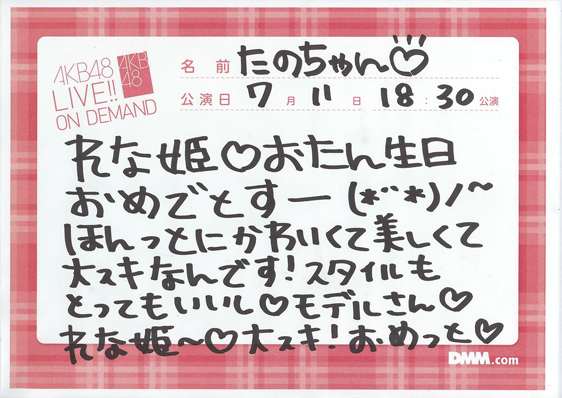 AKB48
LIVE!!
ON DEMAND
AKB
48
名 前 たのちゃん♡
公演日 7 月 11 日 18:30 公演
れな姫♡おたん生日
おめでとすー(*¨*)ノ~
ほんっとにかわいくて美しくて
大スキなんです!スタイルも
とってもいいし♡モデルさん♡
れな姫~♡大スキ!おめっと♡
DMM.com